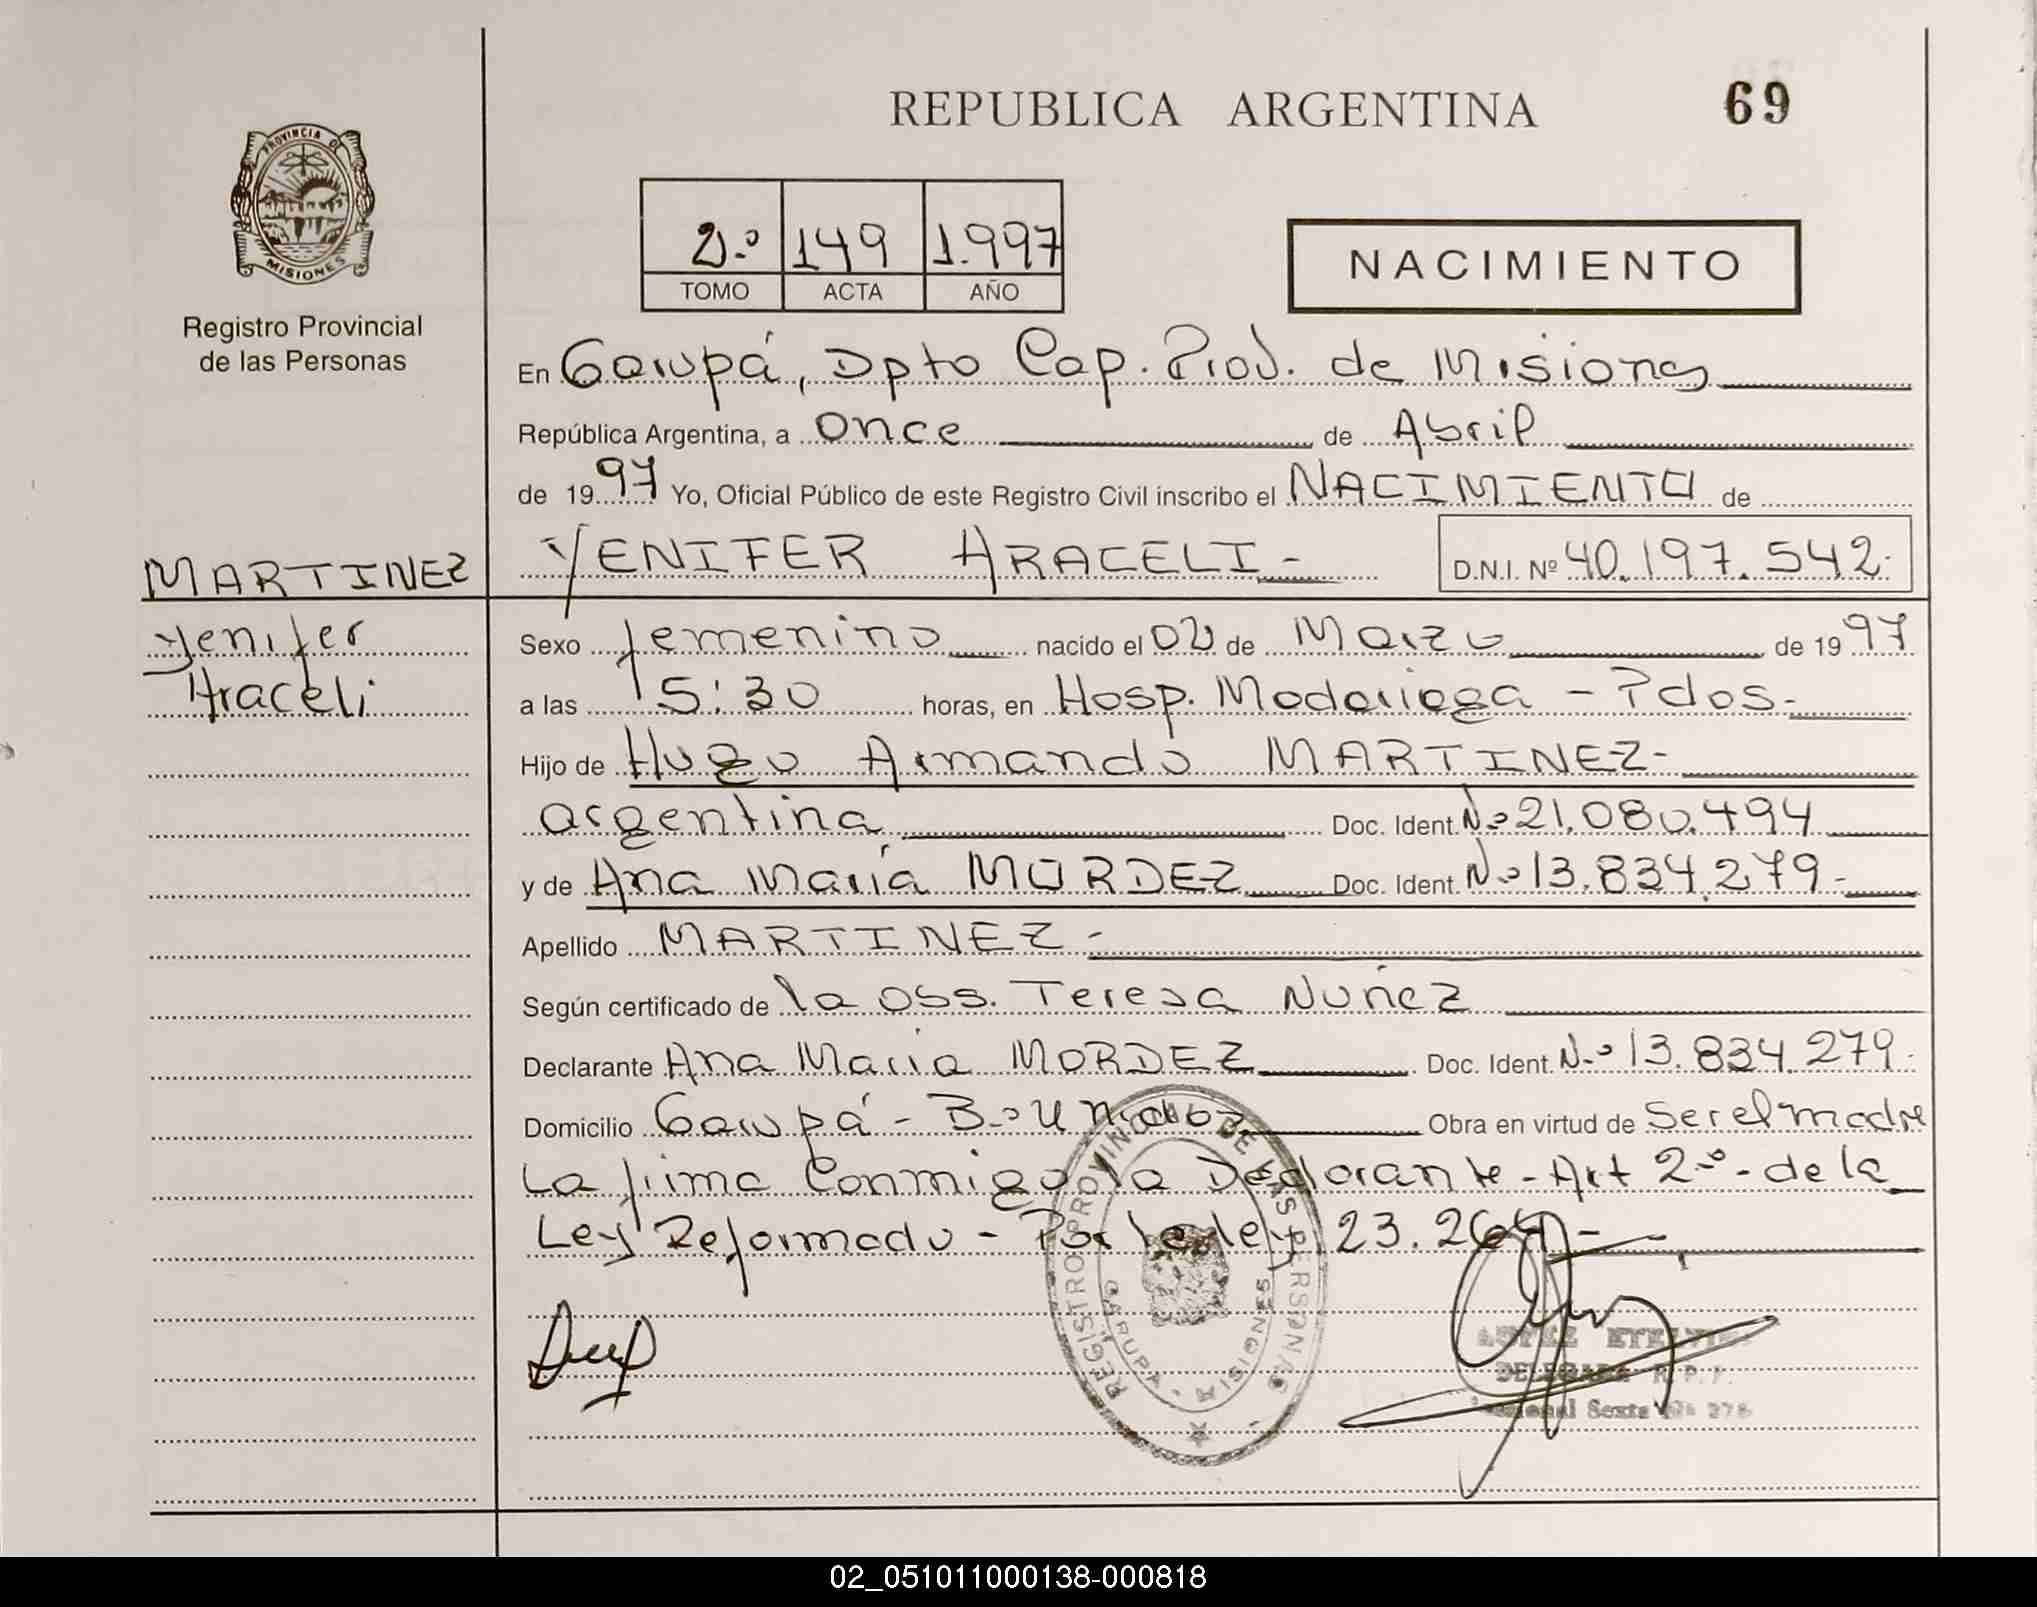 REPUBLICA ARGENTINA
69
PROVINCIA DE
MISIONES
Registro Provincial
de las Personas
2º 149 1.997
TOMO ACTA AÑO
NACIMIENTO
En Garupá, Dpto Cap. Prov. de Misiones
República Argentina, a Once de Abril
de 1997 Yo, Oficial Público de este Registro Civil inscribo el NACIMIENTO de
YENIFER ARACELI - D.N.I. Nº 40.197.542.
MARTINEZ
Yenifer
Araceli
Sexo femenino nacido el 02 de Marzo de 1997
a las 15:30 horas, en Hosp. Madariaga - Pdas-
Hijo de Hugo Armando MARTINEZ-
argentina Doc. Ident. Nº 21.080.494
y de Ana María MORDEZ Doc. Ident. Nº 13.834.279-
Apellido MARTINEZ-
Según certificado de la Obs. Teresa Nuñez
Declarante Ana Maria MORDEZ Doc. Ident. Nº 13.834.279.
Domicilio Garupá - Bº Unidos Obra en virtud de Ser el madre
La firma Conmigo la Declarante - Art 2º - de la
Ley Reformado - Por la ley 23.264 -
REGISTRO PROVINCIAL DE LAS PERSONAS
GARUPA - MISIONES
DELEGADA R.P.P.
Seccional Sexta
02_051011000138-000818